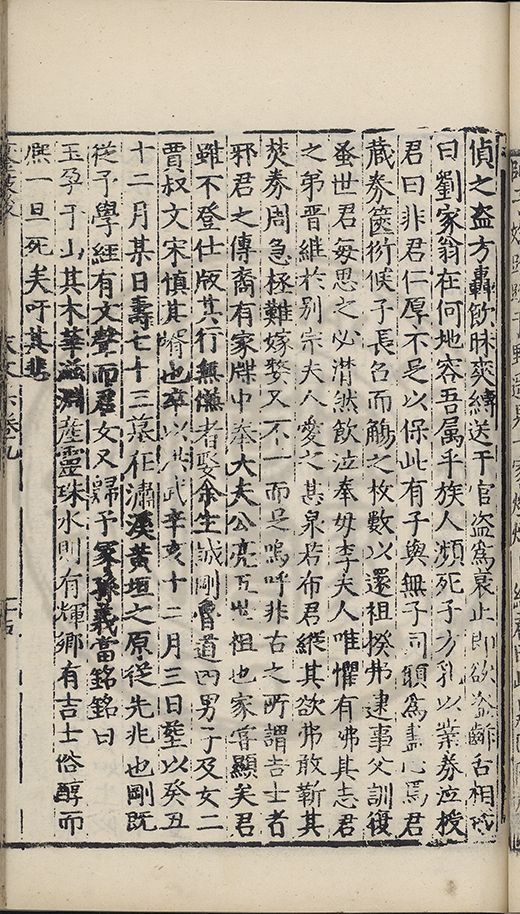 偵之盗方轟飲昧爽縛送于官盗爲哀止即欲盗齰舌相戒
曰劉家翁在何地容吾屬乎族人瀕死子方乳以業券泣授
君曰非君仁厚不足以保此有子與無子司願爲盡心焉君
蔵券篋衍候子長召而觴之枚數以還祖揆弗逮事父訓復
蚤世君每思之必潸然飲泣奉毋李夫人唯懼有咈其志君
之弟晋継於别宗夫人愛之甚泉若布君縱其欲弗敢靳其
焚券周急極難嫁娶又不一而足嗚呼非古之所謂吉士者
邪君之傳裔有家牒中奉大夫公亮五世祖也家嘗顯矣君
雖不登仕版其行無儀者娶余生誠剛曾道四男子及女二
賈叔文宋慎其壻也卒以洪武辛亥十二月三日塟以癸丑
十二月某日壽七十三墓在瀟溪黄垣之原從先兆也剛既
從予學經有文聲而君女又歸予冢孫義當銘銘曰
玉孕于山其木華滋淵産靈珠水則有輝鄉有吉士俗醇而
熈一旦死矣吁其悲